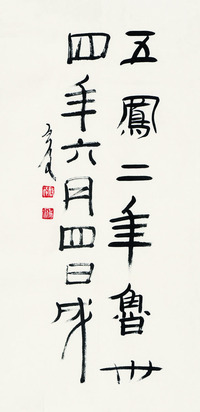 五鳳二年魯卅
四年六月四日成